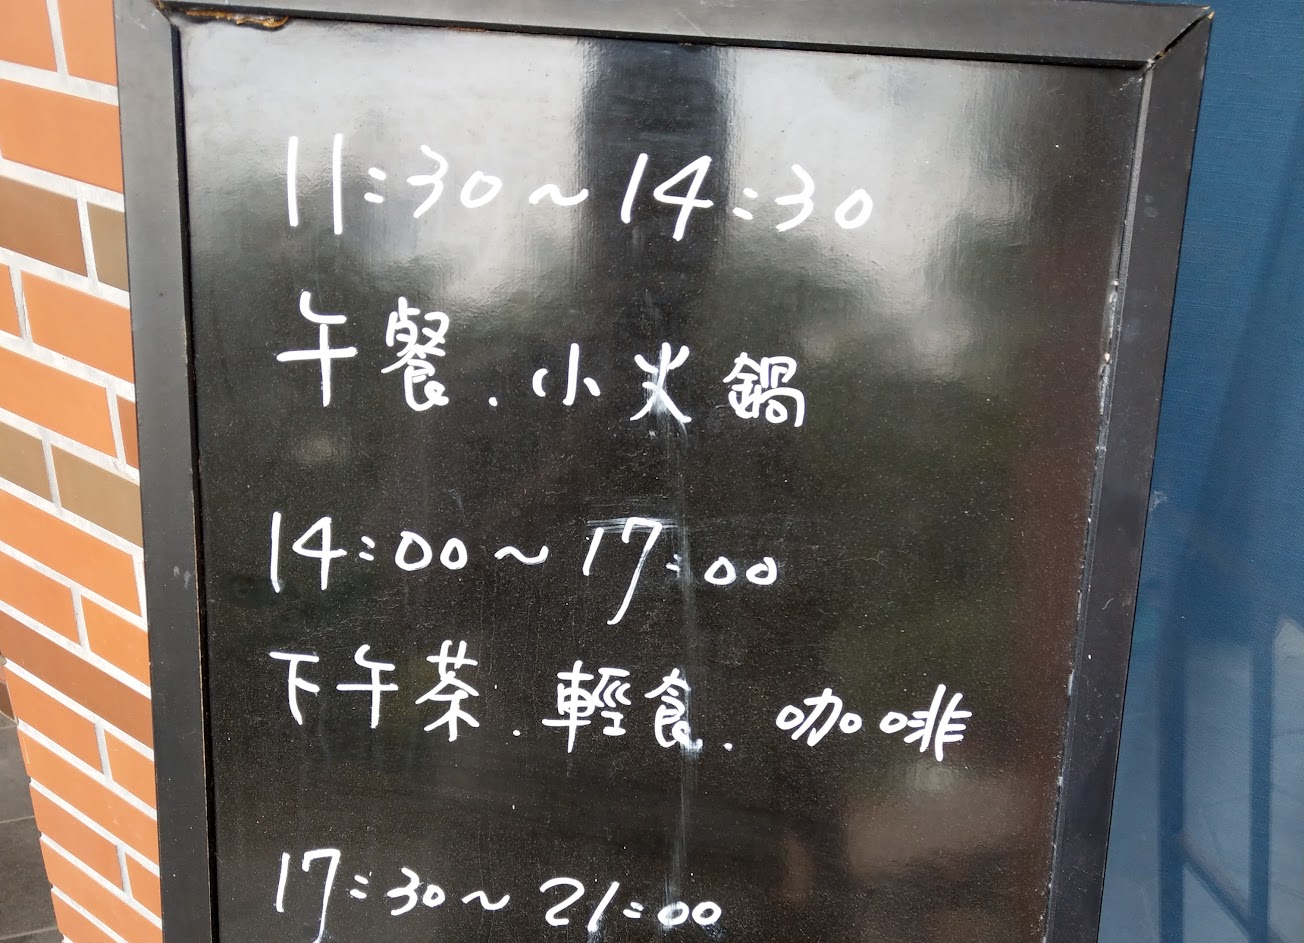 11:30~14:30
午餐.小火鍋
14:00~17:00
下午茶.輕食.咖啡
17:30~21:00